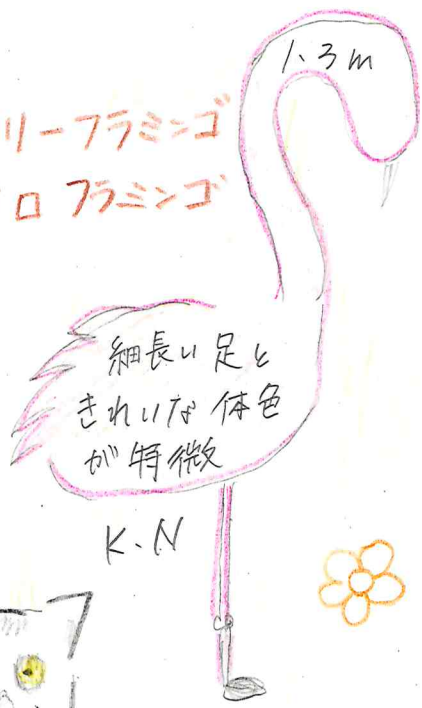 1.3m
リーフラミンゴ
ロフラミンゴ
細長い足と
きれいな体色
が特徴
K.N